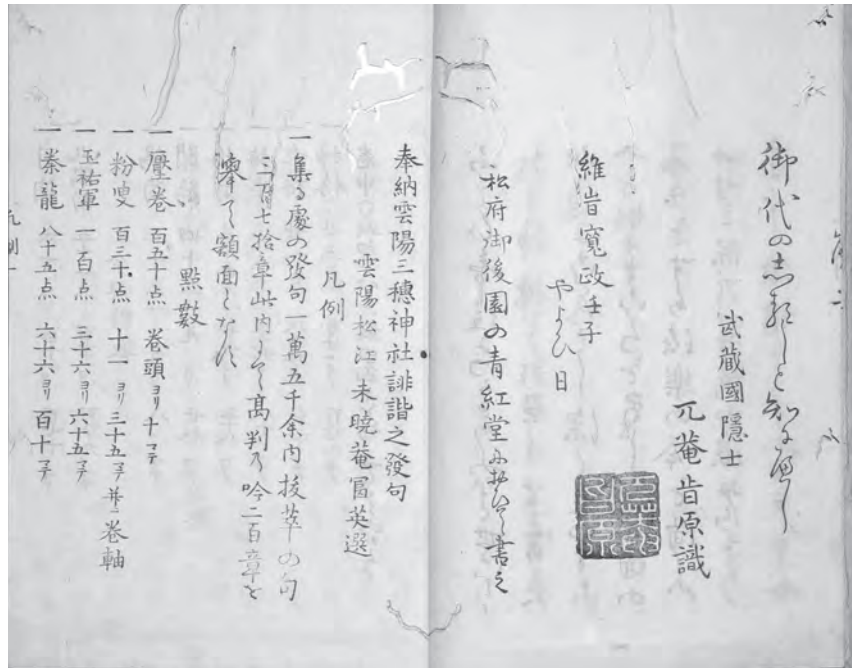 御代の志るしと知るべし
武蔵國隠士
兀菴旹原識
維旹寛政壬子
やよひ日
松府御後園の青紅堂に於て書之
奉納雲陽三穂神社誹諧之發句
雲陽松江未暁菴冨英選
凡例
一集る處の發句一萬五千余内抜萃の句
三百七拾章此内にて高判乃吟二百章を
挙て額面となす
點数
一壓巻 百五十点 巻頭ヨリ十マテ
一粉叟 百三十点 十一ヨリ三十五マテ并ニ巻軸
一玉祐軍 一百点 三十六ヨリ六十五マテ
一豢龍 八十五点 六十六ヨリ百十マテ
凡例一